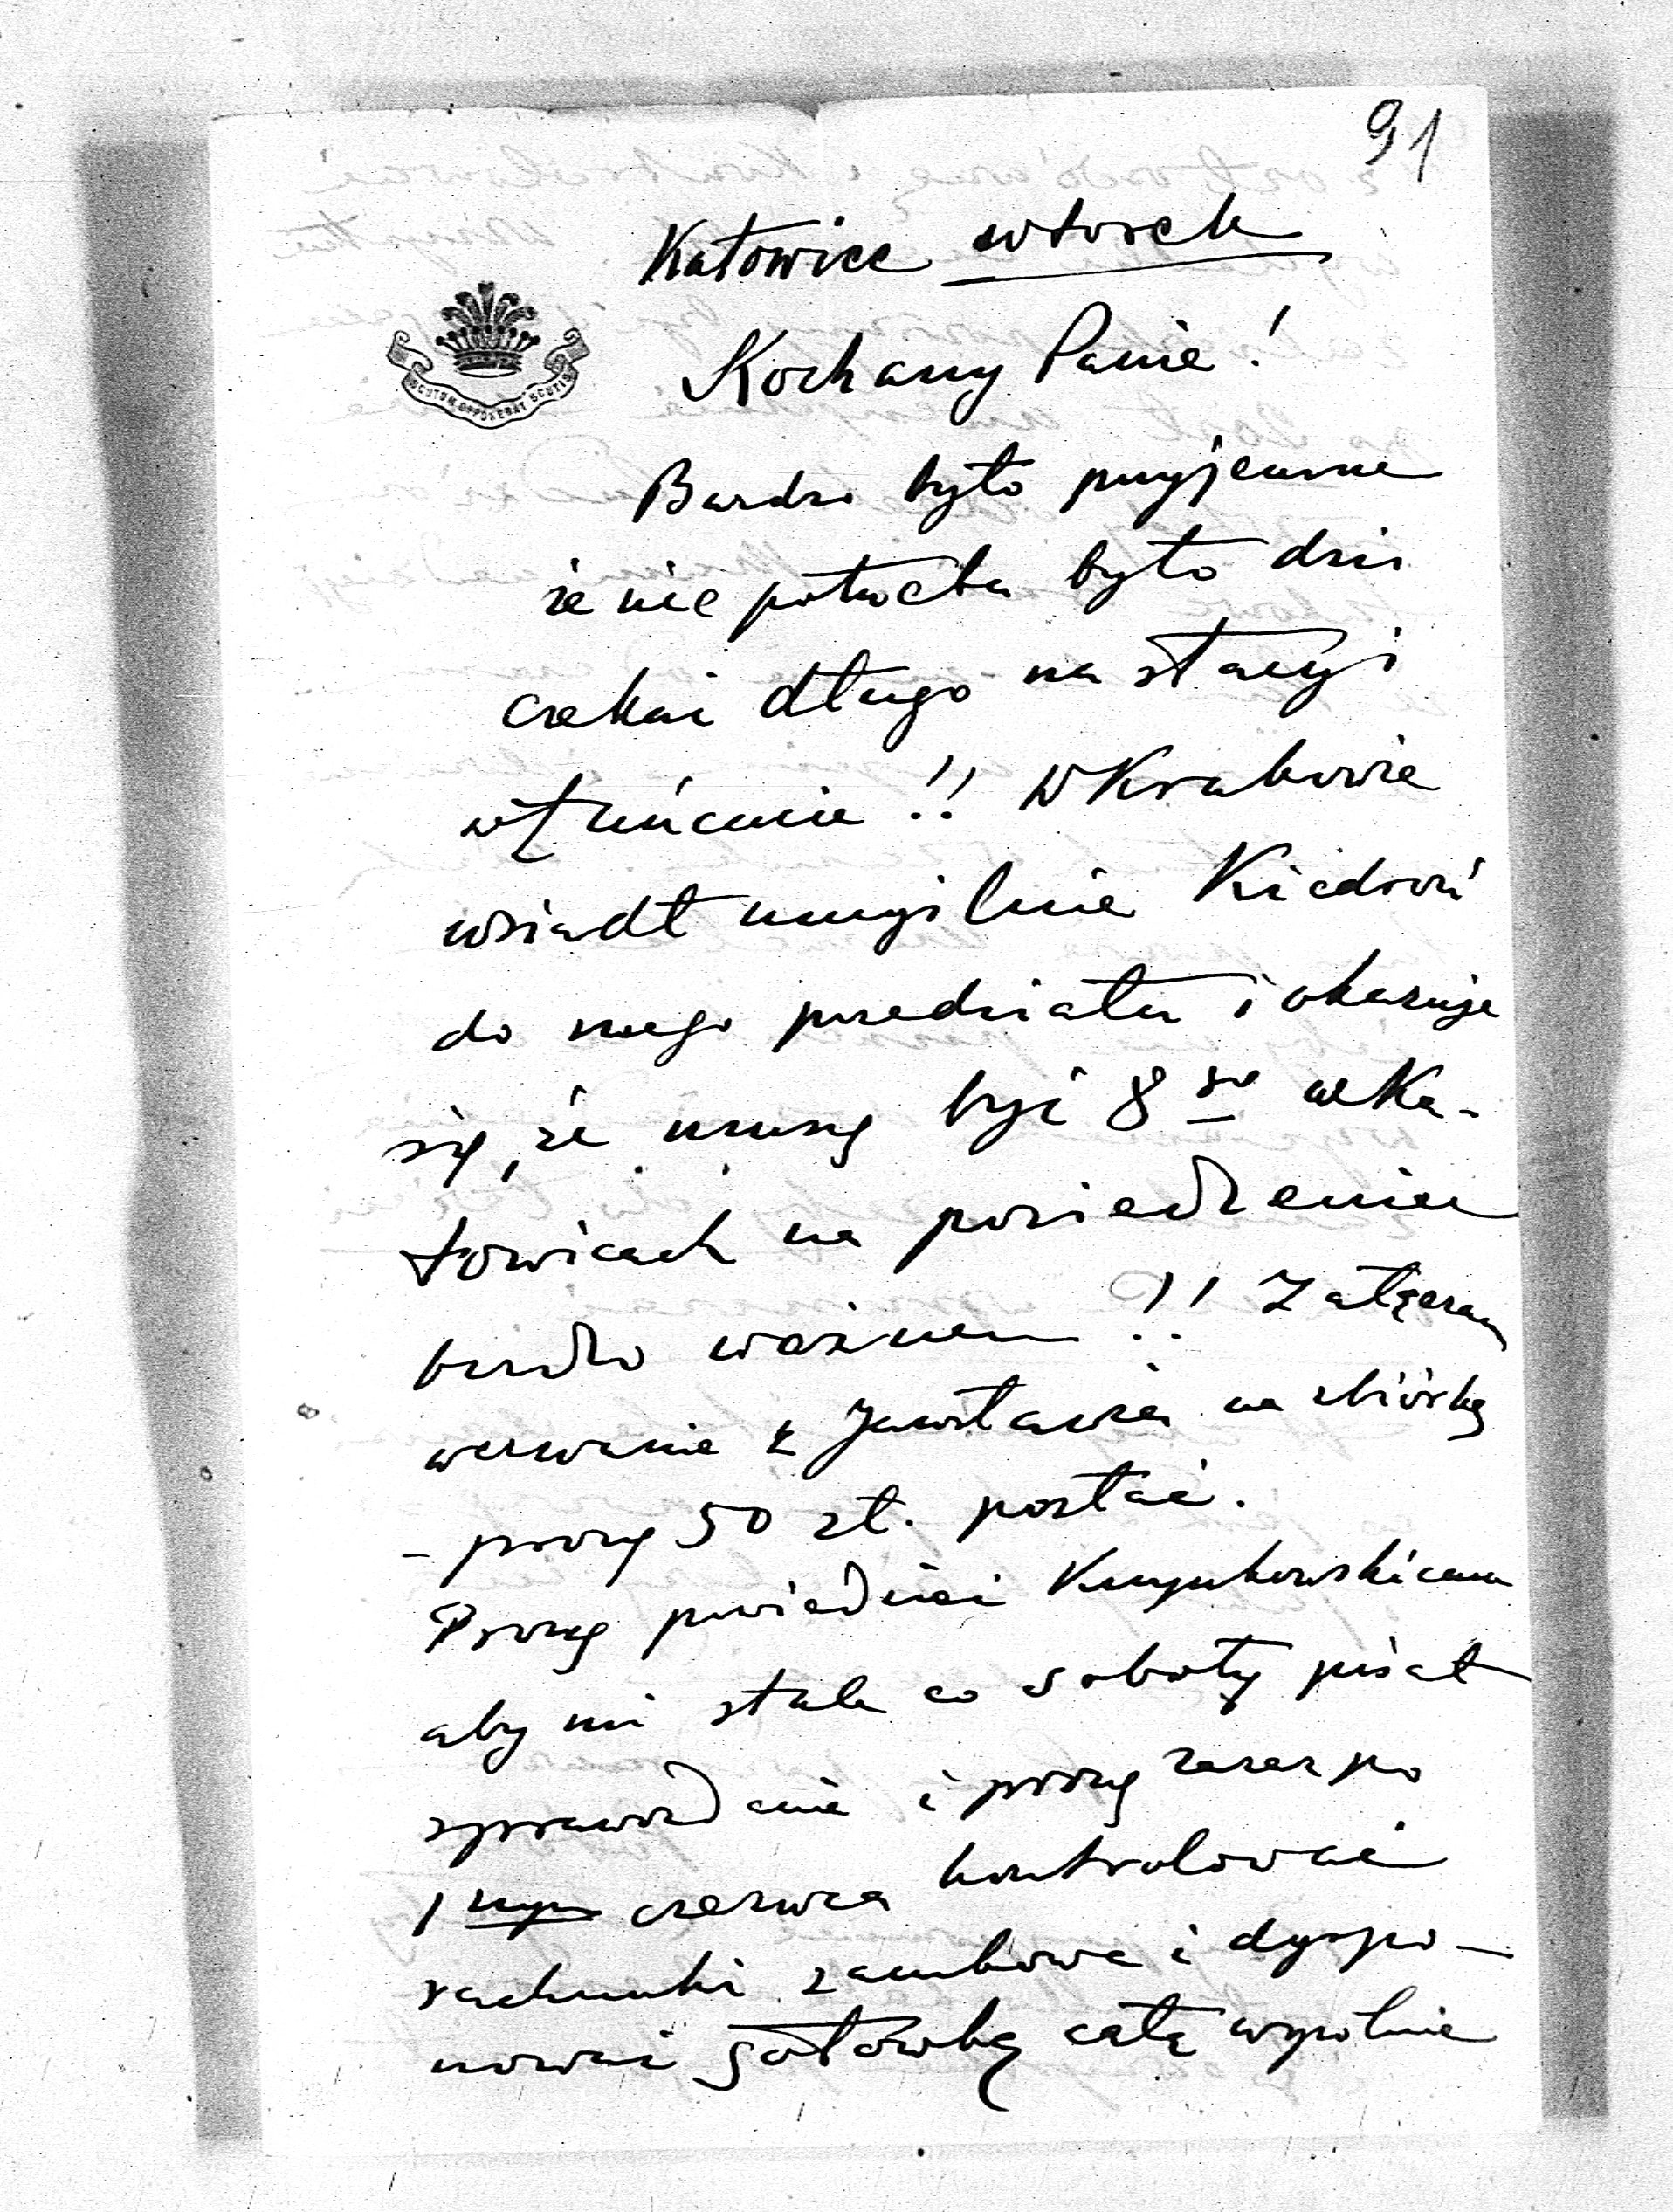 91
Katowice wtorek
SCUTUM OPPONEBAT SCUTIS
Kochany Panie!
Bardzo było przyjemne
że nie potrzeba było dziś
czekać długo na stacyi
w Łańcucie!! W Krakowie
wsiadł umyślnie Kiedroń
do mego przedziału i okazuje
się, że muszę być 8 w Ka-
towicach na posiedzeniu
bardzo ważnem!! Załączam
wezwanie z Jarosławia na zbiórkę
- proszę 50 zł. posłać.
Proszę powiedzieć
aby mi stale co sobotę pisał
sprawozdanie i proszę zaraz po
1 czerwca kontrolować
rachunki zamkowe i dyspo-
nować gotówką całą wspólnie